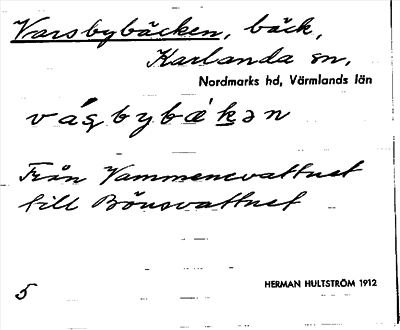 Varsbybäcken, bäck,
Karlanda sn,
Nordmarks hd, Värmlands län
vášbybä́kən
Från Vammenevattnet
till Bönsvattnet
5
HERMAN HULTSTRÖM 1912